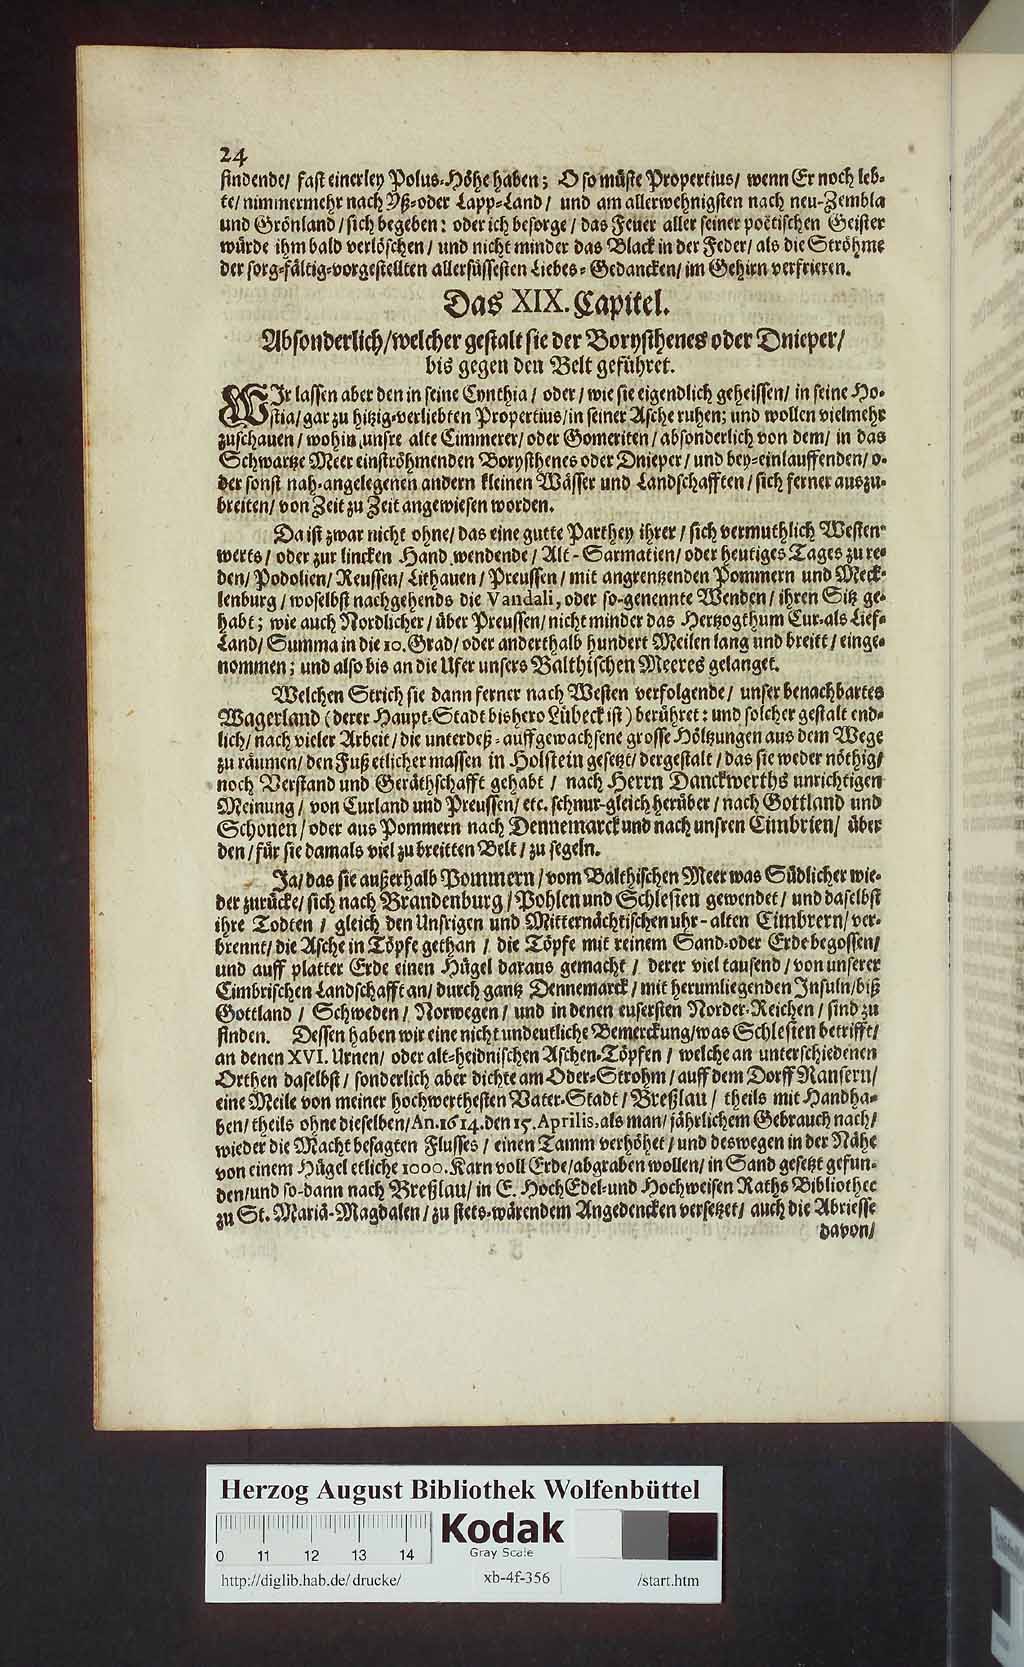 24
findende/ fast einerley Polus-Höhe haben; O so müste Propertius/ wenn Er noch leb-
te/ nimmermehr nach Yß-oder Lapp-Land/ und am allerwehnigsten nach neu-Zembla
und Grönland/ sich begeben: oder ich besorge/ das Feuer aller seiner poëtischen Geister
würde ihm bald verlöschen/ und nicht minder das Black in der Feder/ als die Ströhme
der sorg-fältig-vorgestellten allersüssesten Liebes-Gedancken/ im Gehirn verfrieren.
Das XIX. Capitel.
Absonderlich/ welcher gestalt sie der Borysthenes oder Dnieper/
bis gegen den Belt geführet.
WIr lassen aber den in seine Cynthia/ oder/ wie sie eigendlich geheissen/ in seine Ho-
stia/ gar zu hitzig-verliebten Propertius/ in seiner Asche ruhen; und wollen vielmehr
zuschauen/ wohin unsre alte Cimmerer/ oder Gomeriten/ absonderlich von dem/ in das
Schwartze Meer einströhmenden Borysthenes oder Dnieper/ und bey-einlauffenden/ o-
der sonst nah-angelegenen andern kleinen Wässer und Landschafften/ sich ferner auszu-
breiten/ von Zeit zu Zeit angewiesen worden.
Da ist zwar nicht ohne/ das eine gutte Parthey ihrer/ sich vermuthlich Westen-
werts/ oder zur lincken Hand wendende/ Alt-Sarmatien/ oder heutiges Tages zu re-
den/ Podolien/ Reussen/ Lithauen/ Preussen/ mit angrentzenden Pommern und Meck-
lenburg/ woselbst nachgehends die Vandali, oder so-genennte Wenden/ ihren Sitz ge-
habt; wie auch Nordlicher/ über Preussen/ nicht minder das Hertzogthum Cur-als Lief-
Land/ Summa in die 10. Grad/ oder anderthalb hundert Meilen lang und breitt/ einge-
nommen; und also bis an die Ufer unsers Balthischen Meeres gelanget.
Welchen Strich sie dann ferner nach Westen verfolgende/ unser benachbartes
Wagerland (derer Haupt-Stadt bishero Lübeck ist) berühret: und solcher gestalt end-
lich/ nach vieler Arbeit/ die unterdeß-auffgewachsene grosse Höltzungen aus dem Wege
zu räumen/ den Fuß etlicher massen in Holstein gesetzt/ dergestalt/ das sie weder nöthig/
noch Verstand und Geräthschafft gehabt/ nach Herrn Danckwerths unrichtigen
Meinung/ von Curland und Preussen/ etc. schnur-gleich herüber/ nach Gottland und
Schonen/ oder aus Pommern nach Dennemarck und nach unsren Cimbrien/ über
den/ für sie damals viel zu breitten Belt/ zu segeln.
Ja/ das sie außerhalb Pommern/ vom Balthischen Meer was Südlicher wie-
der zurücke/ sich nach Brandenburg/ Pohlen und Schlesien gewendet/ und daselbst
ihre Todten/ gleich den Unsrigen und Mitternächtischen uhr-alten Cimbrern/ ver-
brennt/ die Asche in Töpfe gethan/ die Töpfe mit reinem Sand-oder Erde begossen/
und auff platter Erde einen Hügel daraus gemacht/ derer viel tausend/ von unserer
Cimbrischen Landschafft an/ durch gantz Dennemarck/ mit herumliegenden Insuln/ biß
Gottland/ Schweden/ Norwegen/ und in denen eusersten Norder-Reichen/ sind zu
finden. Dessen haben wir eine nicht undeutliche Bemerckung/ was Schlesien betrifft/
an denen XVI. Urnen/ oder alt-heidnischen Aschen-Töpfen/ welche an unterschiedenen
Orthen daselbst/ sonderlich aber dichte am Oder-Strohm/ auff dem Dorff Ransern/
eine Meile von meiner hochwerthesten Vater-Stadt/ Breßlau/ theils mit Handha-
ben/ theils ohne dieselben/ An. 1614. den 15. Aprilis, als man/ jährlichem Gebrauch nach/
wieder die Macht besagten Flusses/ einen Tamm verhöhet/ und deswegen in der Nähe
von einem Hügel etliche 1000. Karn voll Erde/ abgraben wollen/ in Sand gesetzt gefun-
den/ und so-dann nach Breßlau/ in E. HochEdel-und Hochweisen Raths Bibliothec
zu St. Mariä-Magdalen/ zu stets-wärendem Angedencken versetzet/ auch die Abriesse
davon/
Herzog August Bibliothek Wolfenbüttel
0 11 12 13 14
Kodak
Gray Scale
http://diglib.hab.de/drucke/ xb-4f-356 /start.htm